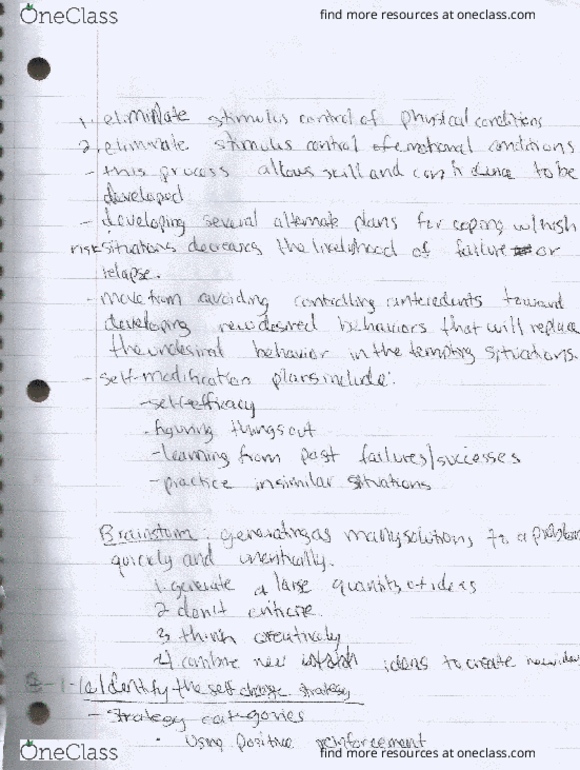 OneClass
find more resources at oneclass.com
1. eliminate stimulus control of physical conditions
2. eliminate stimulus control of emotional conditions
- this process allows skill and confidence to be
developed
- developing several alternate plans for coping w/high
risk situations decreases the likelihood of failure or
relapse.
- move from avoiding controlling antecedents toward
developing new desired behaviors that will replace
the undesired behavior in the tempting situations.
- self-modification plans include:
- self-efficacy
- figuring things out
- learning from past failures/successes
- practice in similar situations
Brainstorm: generating as many solutions to a problem
quickly and
1. generate a large quantity of ideas
2 don't criticize
3 think creatively
4) combine new ideas to create new ideas
Identify the self change strategy
- strategy categories
• using positive reinforcement
OneClass
find more resources at oneclass.com